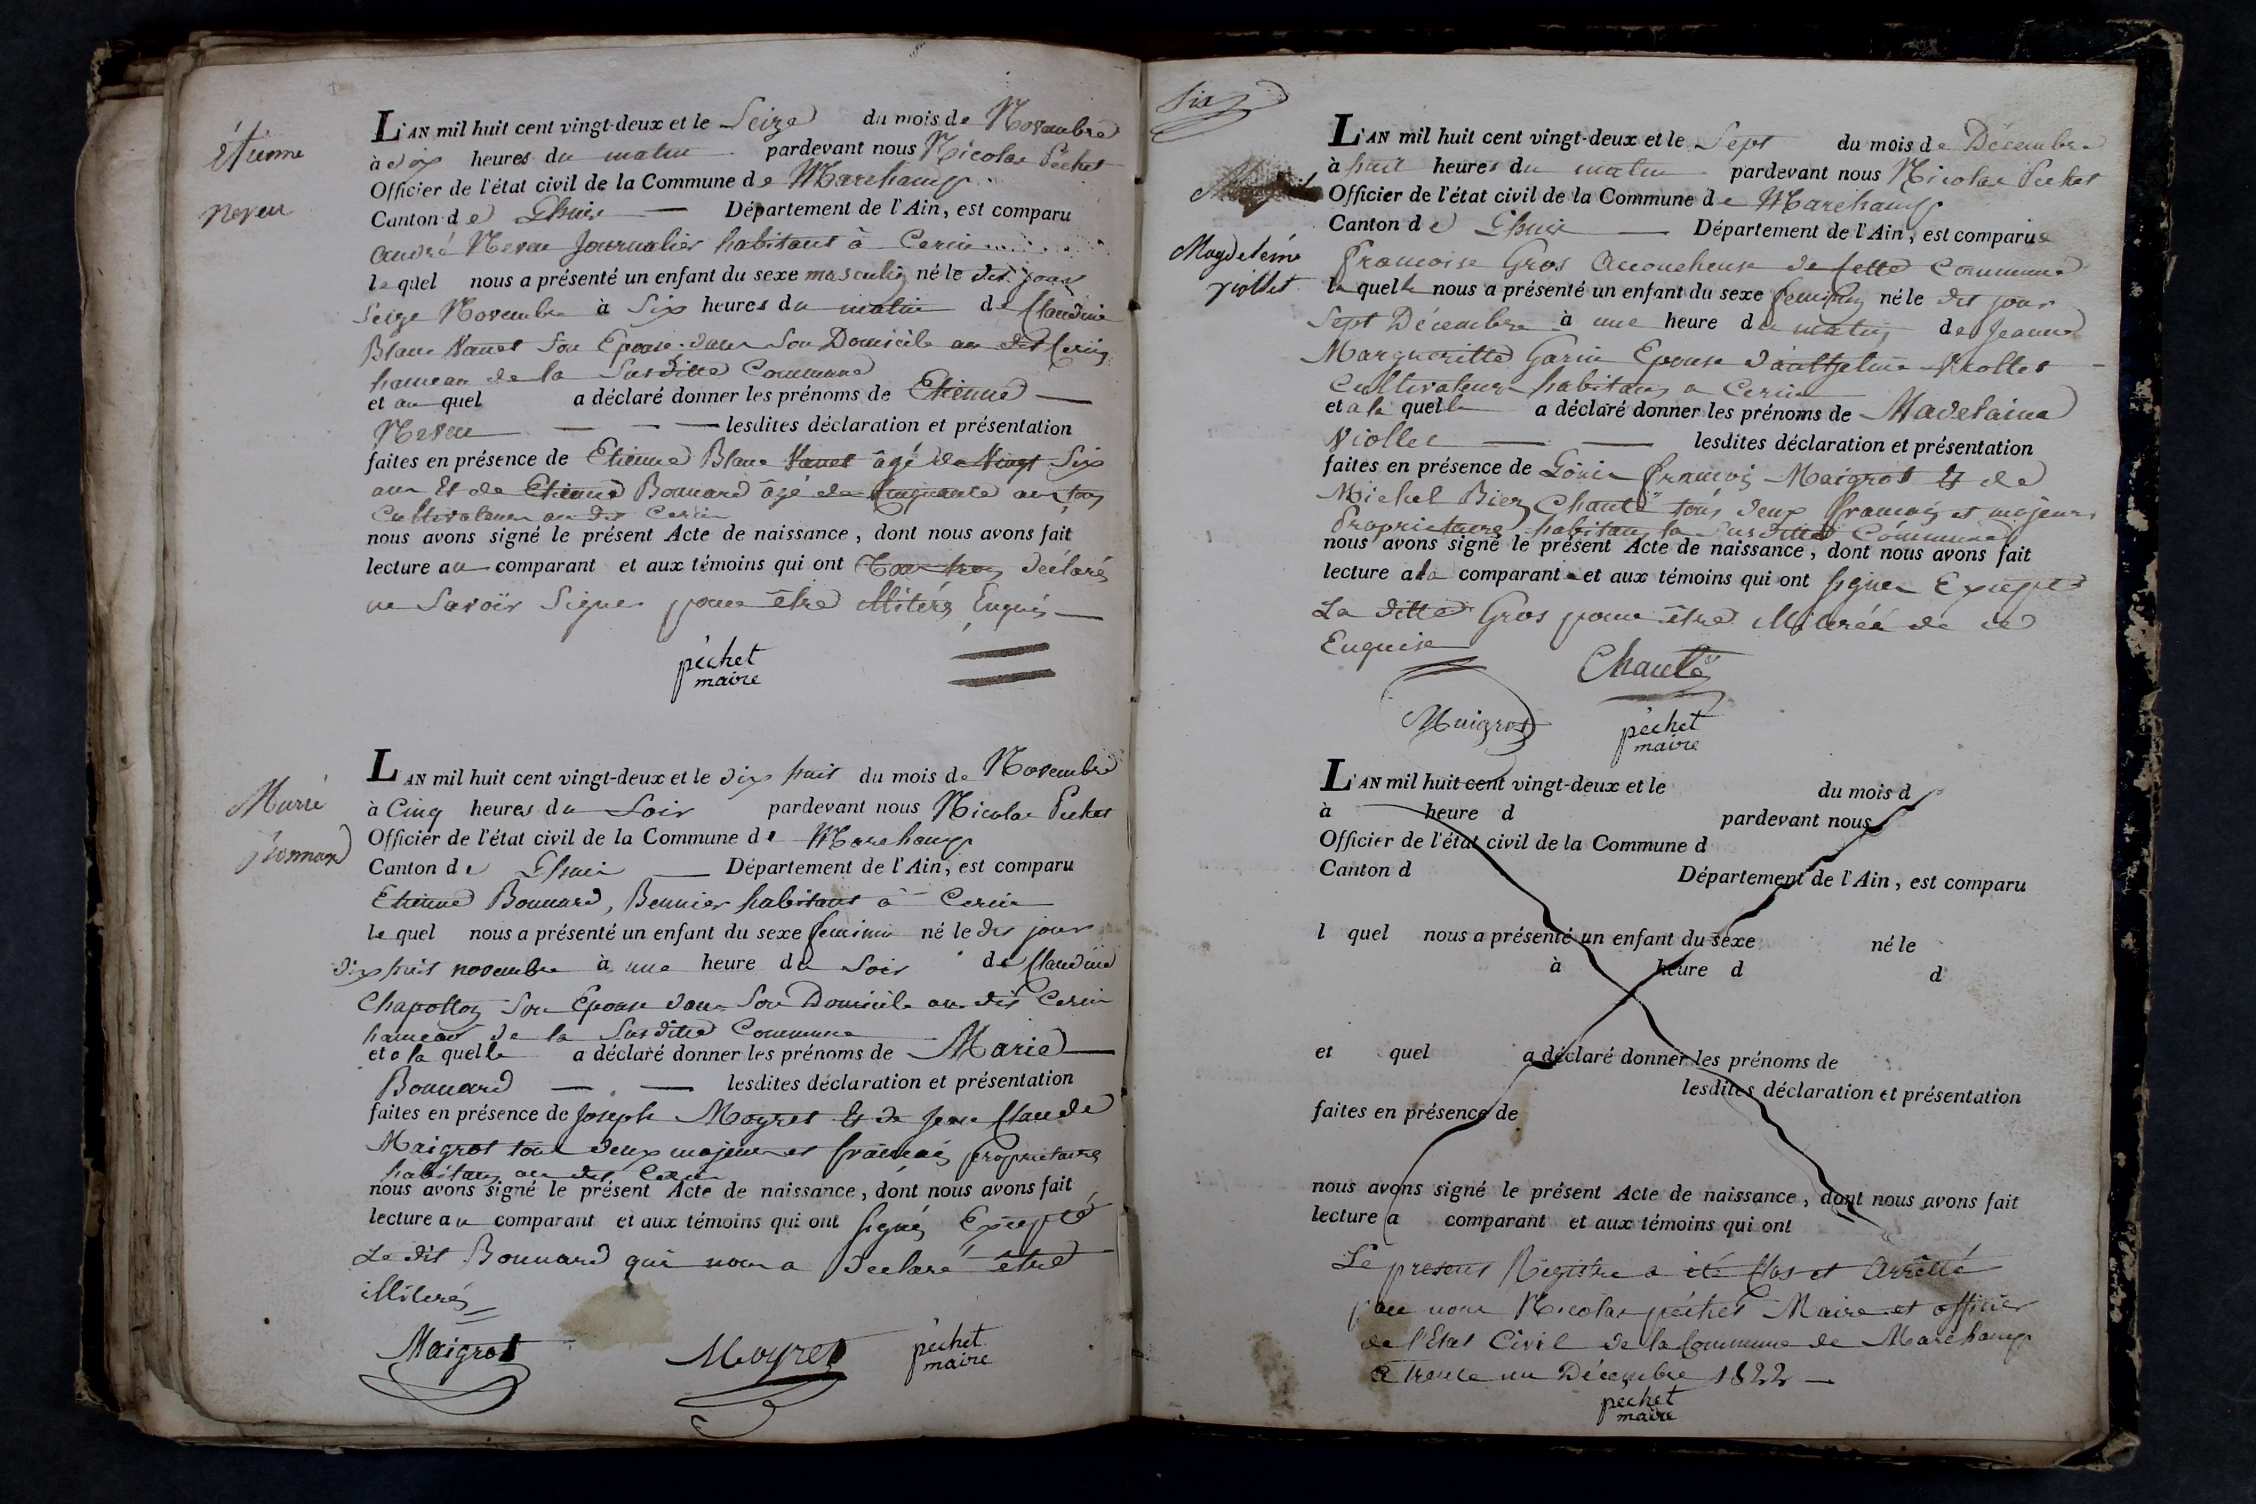 étienne
neveu
L'AN mil huit cent vingt-deux et le Seize du mois de Novembre
à dix heures du matin pardevant nous Nicolas Pechet
Officier de l'état civil de la Commune de Marchamp
Canton de Lhuis — Département de l'Ain, est comparu
andré Neveu Journalier habitant à Cerin
le quel nous a présenté un enfant du sexe masculin né le dit jour
Seize Novembre à Six heures du matin de Claudine
Blanc Nanet Son Epouse dans Son Domicile au dit Cerin
hameau de la Susditte Commune
et au quel a déclaré donner les prénoms de Etienne —
Neveu — — — lesdites déclaration et présentation
faites en présence de Etienne Blanc Nanet âgé de Vingt Six
ans Et de Etienne Bonnard âgé de Cinquante ans tous
Cultivateurs au dit Cerin
nous avons signé le présent Acte de naissance, dont nous avons fait
lecture au comparant et aux témoins qui ont déclarés
ne Savoir Signer pour être illiterés Enquis —
péchet
maire
Marie
bonnard
L'AN mil huit cent vingt-deux et le dix huit du mois de Novembre
à Cinq heures du Soir pardevant nous Nicolas Pechet
Officier de l'état civil de la Commune de Marchamp
Canton de Lhuis — Département de l'Ain, est comparu
Etienne Bonnard, Bennier habitant à Cerin
le quel nous a présenté un enfant du sexe feminin né le dit jour
dix huit novembre à une heure du Soir de Claudine
Chapollon Son Epouse dans Son Domicile au dit Cerin
hameau de la Susditte Commune
et a la quelle a déclaré donner les prénoms de Marie —
Bonnard — — lesdites déclaration et présentation
faites en présence de Joseph Moyret Et de Jean Claude
Maigrot tous deux majeurs et français propriétaires
habitans au dit Cerin
nous avons signé le présent Acte de naissance, dont nous avons fait
lecture au comparant et aux témoins qui ont signés Excepté
Le dit Bonnard qui nous a Declaré être
illiterés
Maigrot Moyret péchet
maire
Six
Magdeleine
viollet
L'AN mil huit cent vingt-deux et le Sept du mois de Décembre
à huit heures du matin pardevant nous Nicolas Pechet
Officier de l'état civil de la Commune de Marchamp
Canton de Lhuis — Département de l'Ain, est comparue
francoise Gros Acoucheuse de cette Commune
la quelle nous a présenté un enfant du sexe feminin né le dit jour
Sept Décembre à une heure du matin de Jeanne
Margueritte Garin Epouse d'anthelme Viollet
Cultivateur habitans a Cerin
et a la quelle a déclaré donner les prénoms de Madelaine
Viollet — — lesdites déclaration et présentation
faites en présence de Louis francois Maigrot Et de
Michel Bier Chanté tous deux francais et majeurs
Proprietaires habitans la Susditte Commune
nous avons signé le présent Acte de naissance, dont nous avons fait
lecture a la comparante et aux témoins qui ont signer Excepté
La ditte Gros pour être illiterée de ce
Enquise
Chanté
Maigrot péchet
maire
L'AN mil huit cent vingt-deux et le du mois d
à heure d pardevant nous
Officier de l'état civil de la Commune d
Canton d Département de l'Ain, est comparu
l quel nous a présenté un enfant du sexe né le
à heure d d
et quel a déclaré donner les prénoms de
lesdites déclaration et présentation
faites en présence de
nous avons signé le présent Acte de naissance, dont nous avons fait
lecture a comparant et aux témoins qui ont
Le present Registre a été Clos et Arrêtté
par nous Nicolas péchet Maire et officier
de l'Etat Civil de la Commune de Marchamp
a trente un Décembre 1822 —
péchet
maire